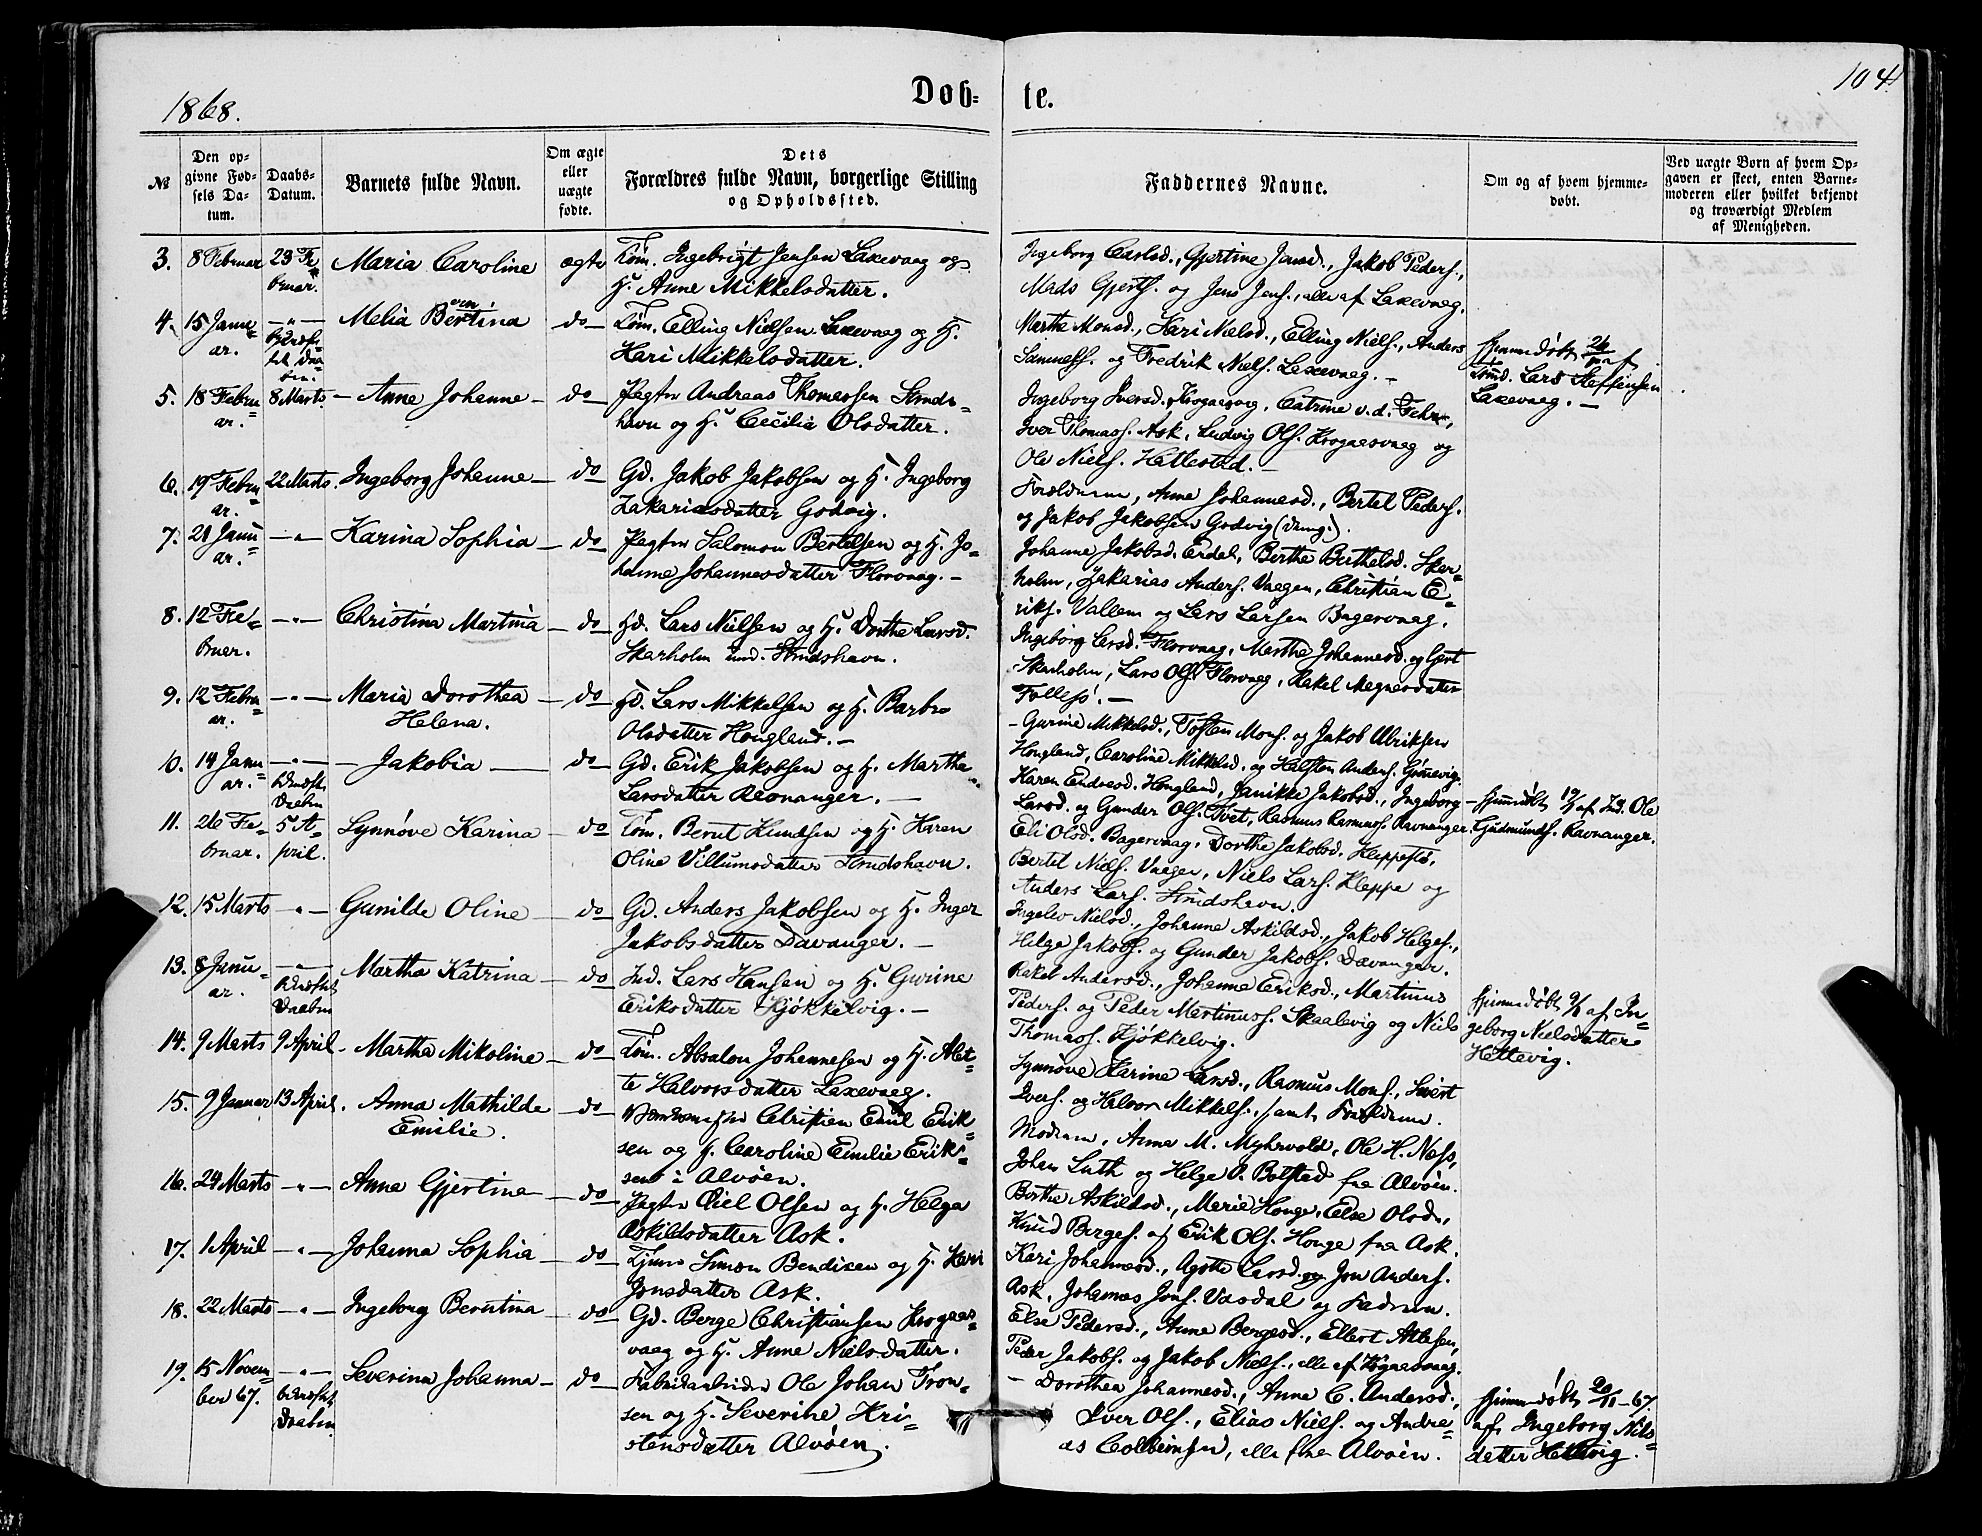 1868.
Døb=
te.
104
№
Den op-
givne Fød-
sels Da-
tum.
Daabs-
Datum.
Barnets fulde Navn.
Om ægte
eller
uægte
fødte.
Dets
Forældres fulde Navn, borgerlige Stilling
og Opholdssted.
Faddernes Navne.
Om og af hvem hjemme-
døbt.
Ved uægte Børn af hvem Op-
gaven er skeet, enten Barne-
moderen eller hvilket bekjendt
og troværdigt Medlem
af Menigheden.
3. 8 Februar 23 Fe-
bruar.
Maria Caroline
ægte
Tøm. Ingebrigt Jensen Laxevaag og
H. Anne Mikkelsdatter.
Ingeborg Carlsd., Gjertine Jansd., Jakob Peders.,
Mads Gjerts. og Jens Jens., alle af Laxevaag.
4. 15 Janu-
ar.
-"- bekræf-
tet Daa-
ben.
Melia Bertina
do
Tøm. Elling Nielsen Laxevaag og H.
Kari Mikkelsdatter.
Martha Monsd., Kari Nielsd., Elling Niels., Anders
Samuels. og Fredrik Niels. Laxevaag. -
Hjemmedøbt af
Lars Steffensen
Laxevaag. -
5. 18 Febru-
ar.
8 Marts.
Anne Johanne
do
Pagter Andreas Thomassen Struds-
havn og H. Cecilia Olsdatter.
Ingeborg Iversd. Krogaasvaag, Catrine v. d. Fehr,
Iver Thomass. Ask, Ludvig Ols. Krogaasvaag og
Ole Niels. Hettestad. -
6. 19 Febru-
ar.
22 Marts.
Ingeborg Johanne
do
Gd. Jakob Jakobsen og H. Ingeborg
Zakariasdatter Godvig.
Forældrene, Anne Johannesd., Bertel Peders.
og Jakob Jakobsen Godvig
7. 21 Janu-
ar.
-"-
Karina Sophia
do
Pagter Salomon Bertelsen og H. Jo-
hanne Johannesdatter Florvaag. -
Johanne Jakobsd. Erdal, Berthe Berthelsd. Skar-
holm, Zakarias Anders. Vaagen, Christian E-
riks. Vallem og Lars Larsen Bagervaag.
8. 12 Fe-
bruar.
-"-
Christina Martina
do
Hd. Lars Nielsen og H. Dorthe Larsd.
Skarholm und. Strudshavn.
Ingeborg Larsd. Florvaag, Martha Johannesd. og Gjert
Skarholm, Lars Ols. Florvaag, Rakel Magnesdatter
Follesø. -
9. 12 Febru-
ar.
-"-
Maria Dorothea
Helena.
do
Hd. Lars Mikkelsen og H. Barbro
Olsdatter Hougland. -
- Gurine Mikkelsd., Tosten Mons. og Jakob Ulriksen
Hougland, Caroline Mikkelsd. og Halsten Anders.
10. 14 Janu-
ar.
-"- bekræftet
Daaben
Jakobia
do
Gd. Erik Jakobsen og H. Martha
Larsdatter Ravnanger. -
Karen Endresd. Hougland, Janikke Jakobsd., Ingeborg
Larsd. og Gunder Ols. Tvet, Rasmus Rasmuss. Ravnanger.
Hjemmedøbt af Ind. Ole
Gudmunds. Ravnanger.
11. 26 Fe-
bruar.
5 A-
pril.
Synnøve Karina
do
Tøm. Berut Knudsen og H. Karen
Oline Villumsdatter Strudshavn.
Eli Olsd. Bagervaag, Dorthe Jakobsd. Kleppestø,
Bertel Niels. Vaagen, Niels Lars. Kleppe og
Anders Lars. Strudshavn.
12. 15 Marts
-"-
Gunilde Oline
do
Gd. Anders Jakobsen og H. Inger
Jakobsdatter Davanger. -
Ingelev Nielsd., Johanne Askildsd., Jakob Helges.,
Helge Jakobs. og Gunder Jakobs. Davanger.
13. 8 Janu-
ar.
-"- bekræftet
Daaben
Martha Katrina
do
Ind. Lars Hansen og H. Gurine
Eriksdatter Kjøkkelvig. -
Rakel Andersd., Johanne Eriksd., Martinus
Peders. og Peder Martinuss. Skaalevig og Niels
Thomass. Kjøkkelvig.
Hjemmedøbt af In-
geborg Nielsdatter
Hettevig.
14. 9 Marts
9 April
Martha Mikoline
do
Tøm. Absalon Johannesen og H. Alet-
te Halvorsdatter Laxevaag.
Synnøve Karine Larsd., Rasmus Mons., Sivert
Ivers. og Halvor Mikkels. samt Forældrene.
15. 9 Januar
13 April.
Anna Mathilde
Emilie.
do
Christian Emil Erik-
sen og H. Caroline Emilie Erik-
sens i Alvøen.
Moderen, Anne M. Myhrvold, Ole H. Næss,
Johan Luth og Helge O. Bolstad fra Alvøen.
16. 24 Marts
-"-
Anna Gjertina
do
Pagter Eiel Olsen og H. Helga
Askildsdatter Ask.
Berthe Askildsd., Marie Houge, Else Olsd.,
Knud Berges. og Erik Ols. Houge fra Ask.
17. 1 April
-"-
Johanna Sophia
do
Tjener Simon Bendixen og H. Kari
Jonsdatter Ask.
Kari Johannesd., Agathe Larsd. og Jon Anders.
Ask, Johannes Jons. Vasdal og Faderen.
18. 22 Marts
-"-
Ingeborg Berntina
do
Gd. Berge Christiansen Krogaas-
vaag og H. Anne Nielsdatter.
Else Pedersd., Anne Bergesd., Ellert Atlesen,
Peder Jakobs. og Jakob Niels., alle af Krogaasvaag.
19. 15 Novem-
ber 67.
-"- bekræftet
Daaben
Severina Johanna
do
Fabrikarbeider Ole Johan Tron-
sen og H. Severine Kri-
stensdatter Alvøen.
- Dorothea Johannesd., Anne C. Andersd.,
Iver Ols., Elias Niels. og Andre-
as Colbeinsen, alle fra Alvøen.
Hjemmedøbt 20/11 - 67
af Ingeborg Nils-
datter Hettevig.